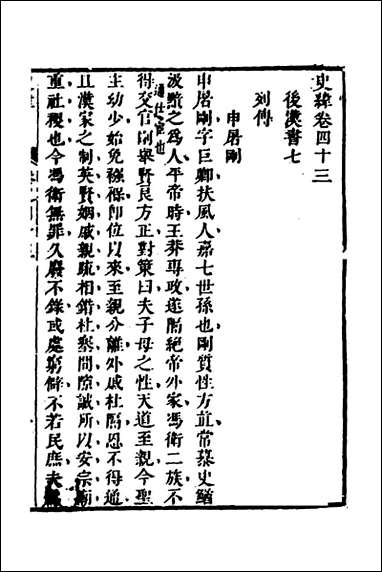 史緯卷四十三
後漢書七
列傳
申屠剛
申屠剛字巨卿扶風人嘉七世孫也剛質性方直常慕史鰌
汲黯之爲人平帝時王莽專政遂隔絕帝外家馮衛二族不
得交官剛舉賢良方正對策曰夫子母之性天道至親今聖
通仕宦也
主幼少始免襁褓即位以來至親分離外戚杜隔恩不得通
且漢家之制英賢姻戚親疏相錯杜塞間隙誠所以安宗廟
重社稷也今馮衛無罪久廢不錄或處窮僻不若民庶夫